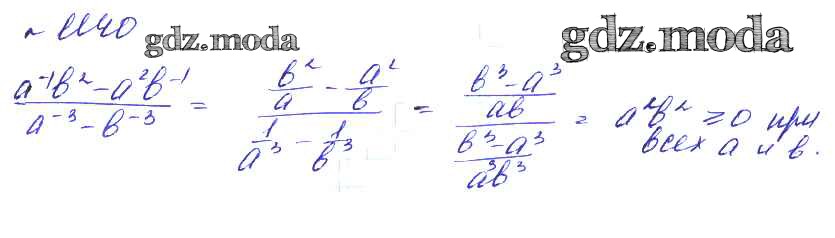 № 1140
gdz.moda
gdz.moda
(a⁻¹b² - a²b⁻¹)/(a⁻³ - b⁻³) = (b²/a - a²/b)/(1/a³ - 1/b³) = ((b³ - a³)/(ab))/((b³ - a³)/(a³b³)) = a²b² ≥ 0 при
всех a и b.